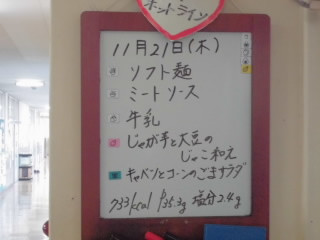 ホットライン
11月21日(木)
ソフト麺
ミートソース
牛乳
じゃが芋と大豆の
じゃこ和え
キャベツとコーンのごまサラダ
733kcal P35.3g 塩分2.4g